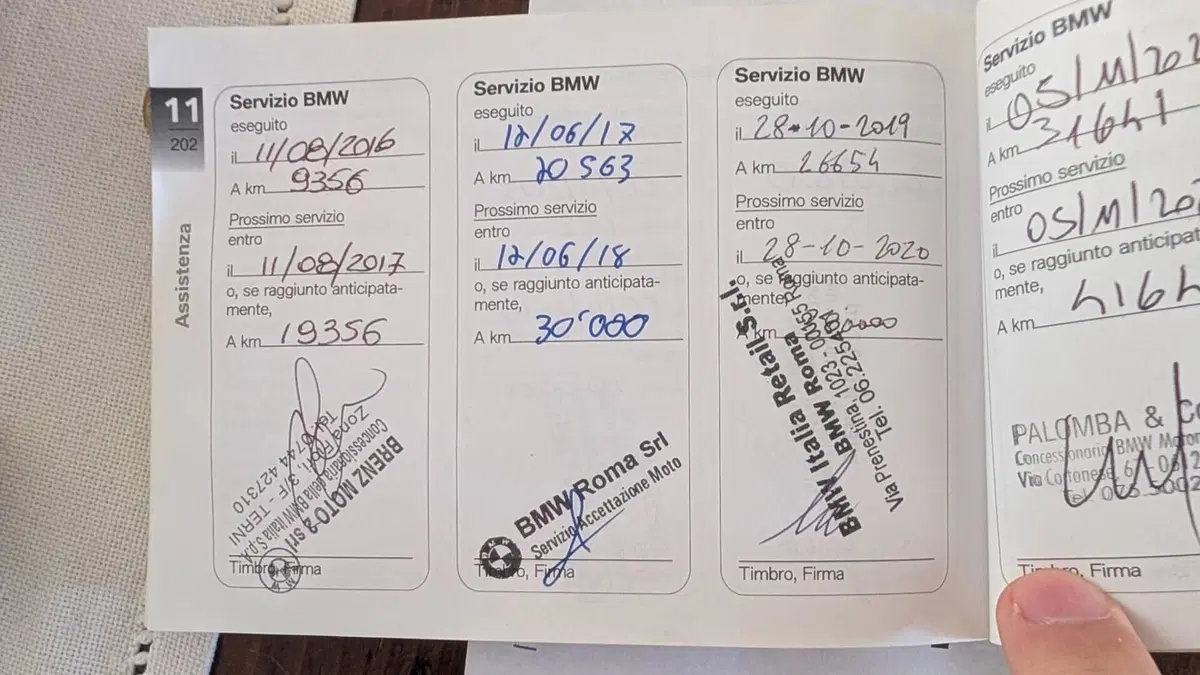 11
202
Assistenza
Servizio BMW
eseguito
il 11/08/2016
A km 9356
Prossimo servizio
entro
il 11/08/2017
o, se raggiunto anticipata-
mente,
A km 19356
BRENZ MOTO 2 srl
Concessionaria della BMW Italia S.p.A.
Zona Fiori, 3/F - TERNI
Tel. 0744 427310
Timbro, Firma
Servizio BMW
eseguito
il 12/06/17
A km 20563
Prossimo servizio
entro
il 12/06/18
o, se raggiunto anticipata-
mente,
A km 30'000
BMW Roma Srl
Servizio Accettazione Moto
Timbro, Firma
Servizio BMW
eseguito
il 28-10-2019
A km 26654
Prossimo servizio
entro
il 28-10-2020
o, se raggiunto anticipata-
mente,
km
BMW Italia Retail S.r.l.
BMW Roma
Via Prenestina, 1023 - Roma
Tel. 06.
Timbro, Firma
Servizio BMW
eseguito
il 05/11/202
A km 31641
Prossimo servizio
entro
il 05/11/20
o, se raggiunto anticipat
mente,
A km 4164
PALOMBA &
Concessionario BMW
Via
Timbro, Firma